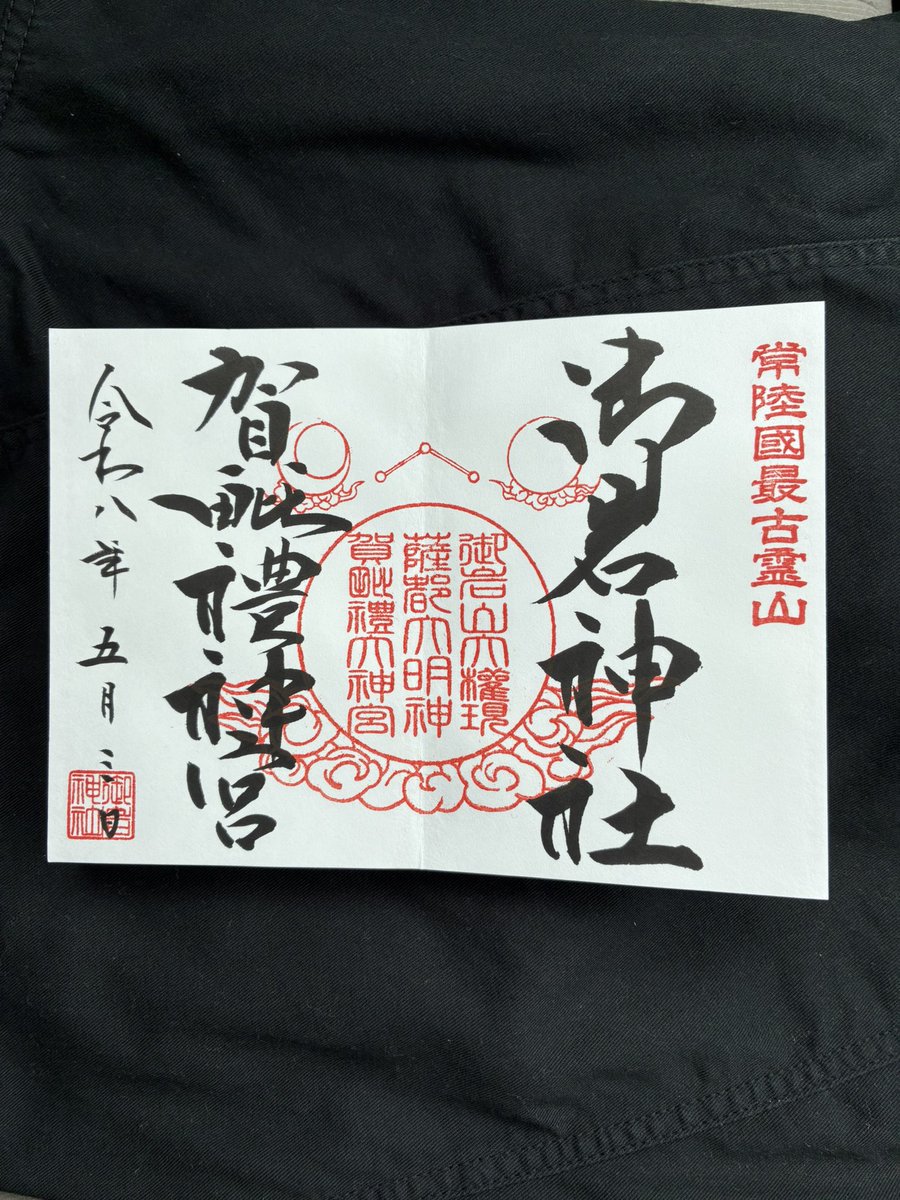 常陸國最古霊山
御岩神社
御岩山大権現
薩都大明神
賀毗禮大神宮
賀毗禮神宮
令和八年 五月三日
御岩神社